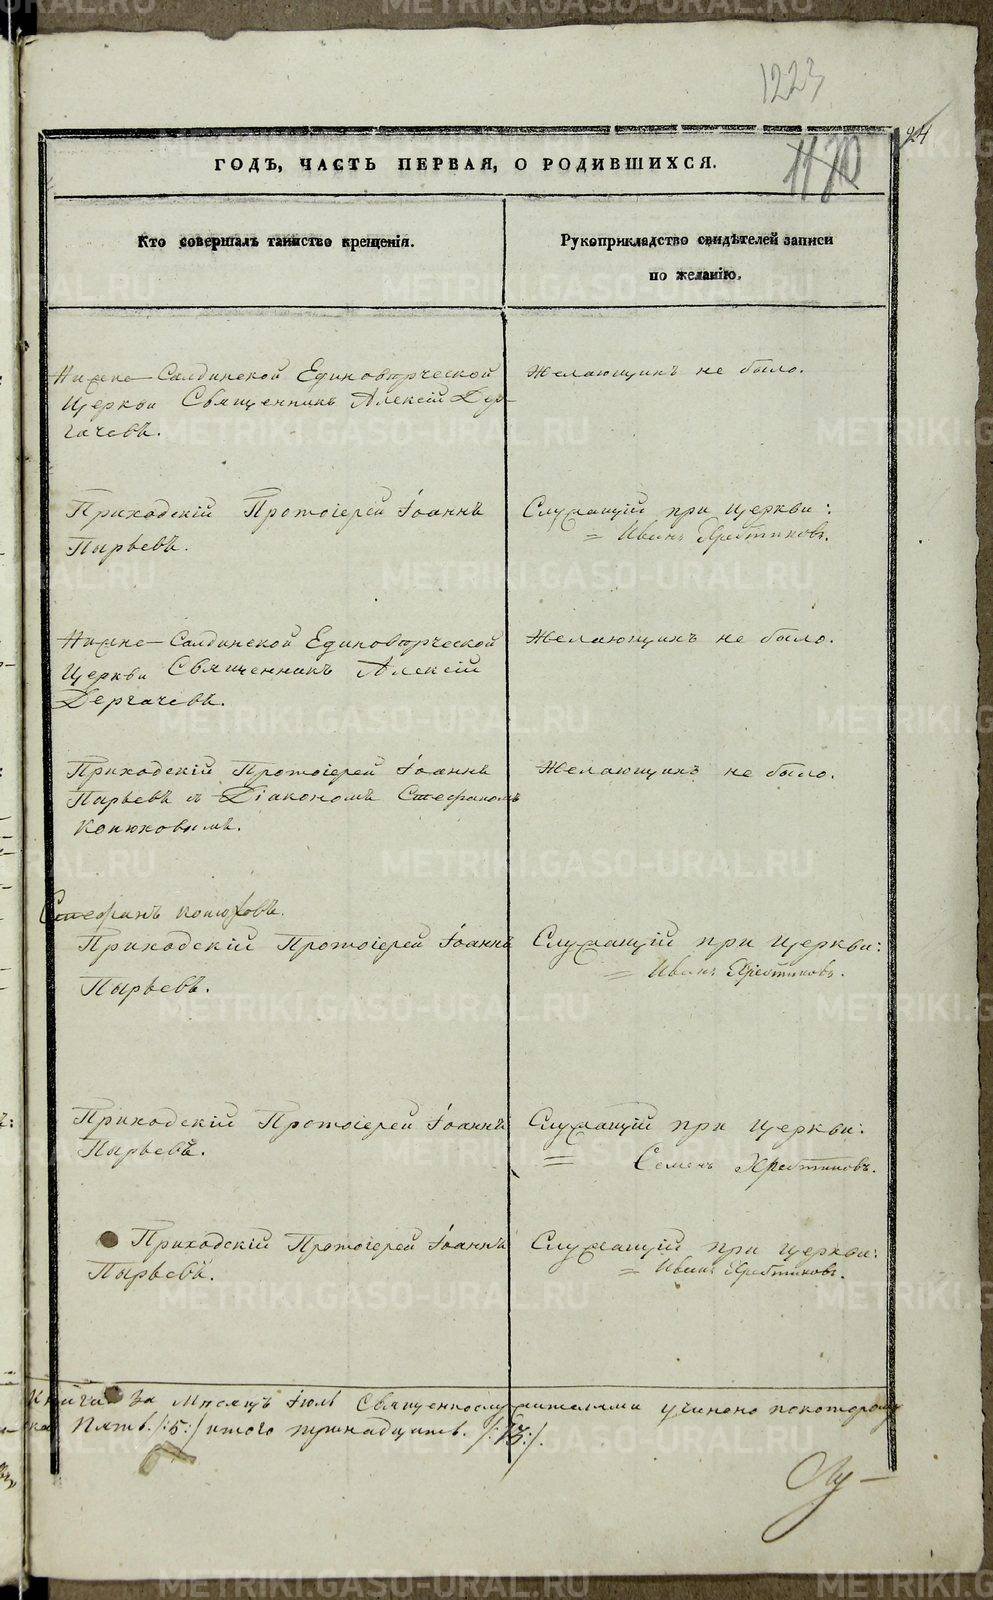 1223
24
1170
ГОДЪ, ЧАСТЬ ПЕРВАЯ, О РОДИВШИХСЯ.
Кто совершалъ таинство крещенія.
Рукоприкладство свидѣтелей записи
по желанію.
Нижне-Салдинской Единовѣрческой
Церкви Священникъ Алексій Дер-
гачевъ.
Желающихъ не было.
Приходскій Протоіерей Іоаннъ
Пырьевъ.
Служащій при церкви:
= Иванъ Хребтиковъ.
Нижне-Салдинской Единовѣрческой
Церкви Священникъ Алексій
Дергачевъ.
Желающихъ не было.
Приходскій Протоіерей Іоаннъ
Пырьевъ съ Діакономъ Стефаномъ
Конюховымъ.
Желающихъ не было.
Стефанъ Конюховъ.
Приходскій Протоіерей Іоаннъ
Пырьевъ.
Служащій при церкви:
= Иванъ Хребтиковъ.
Приходскій Протоіерей Іоаннъ
Пырьевъ.
Служащій при церкви:
= Семенъ Хребтиковъ.
Приходскій Протоіерей Іоаннъ
Пырьевъ.
Служащій при церкви:
= Иванъ Хребтиковъ.
за мѣсяцъ Іюль Священнослужителями учинено по которому
Пять /:5:/ итого тринадцать. /:13:/.
METRIKI.GASO-URAL.RU